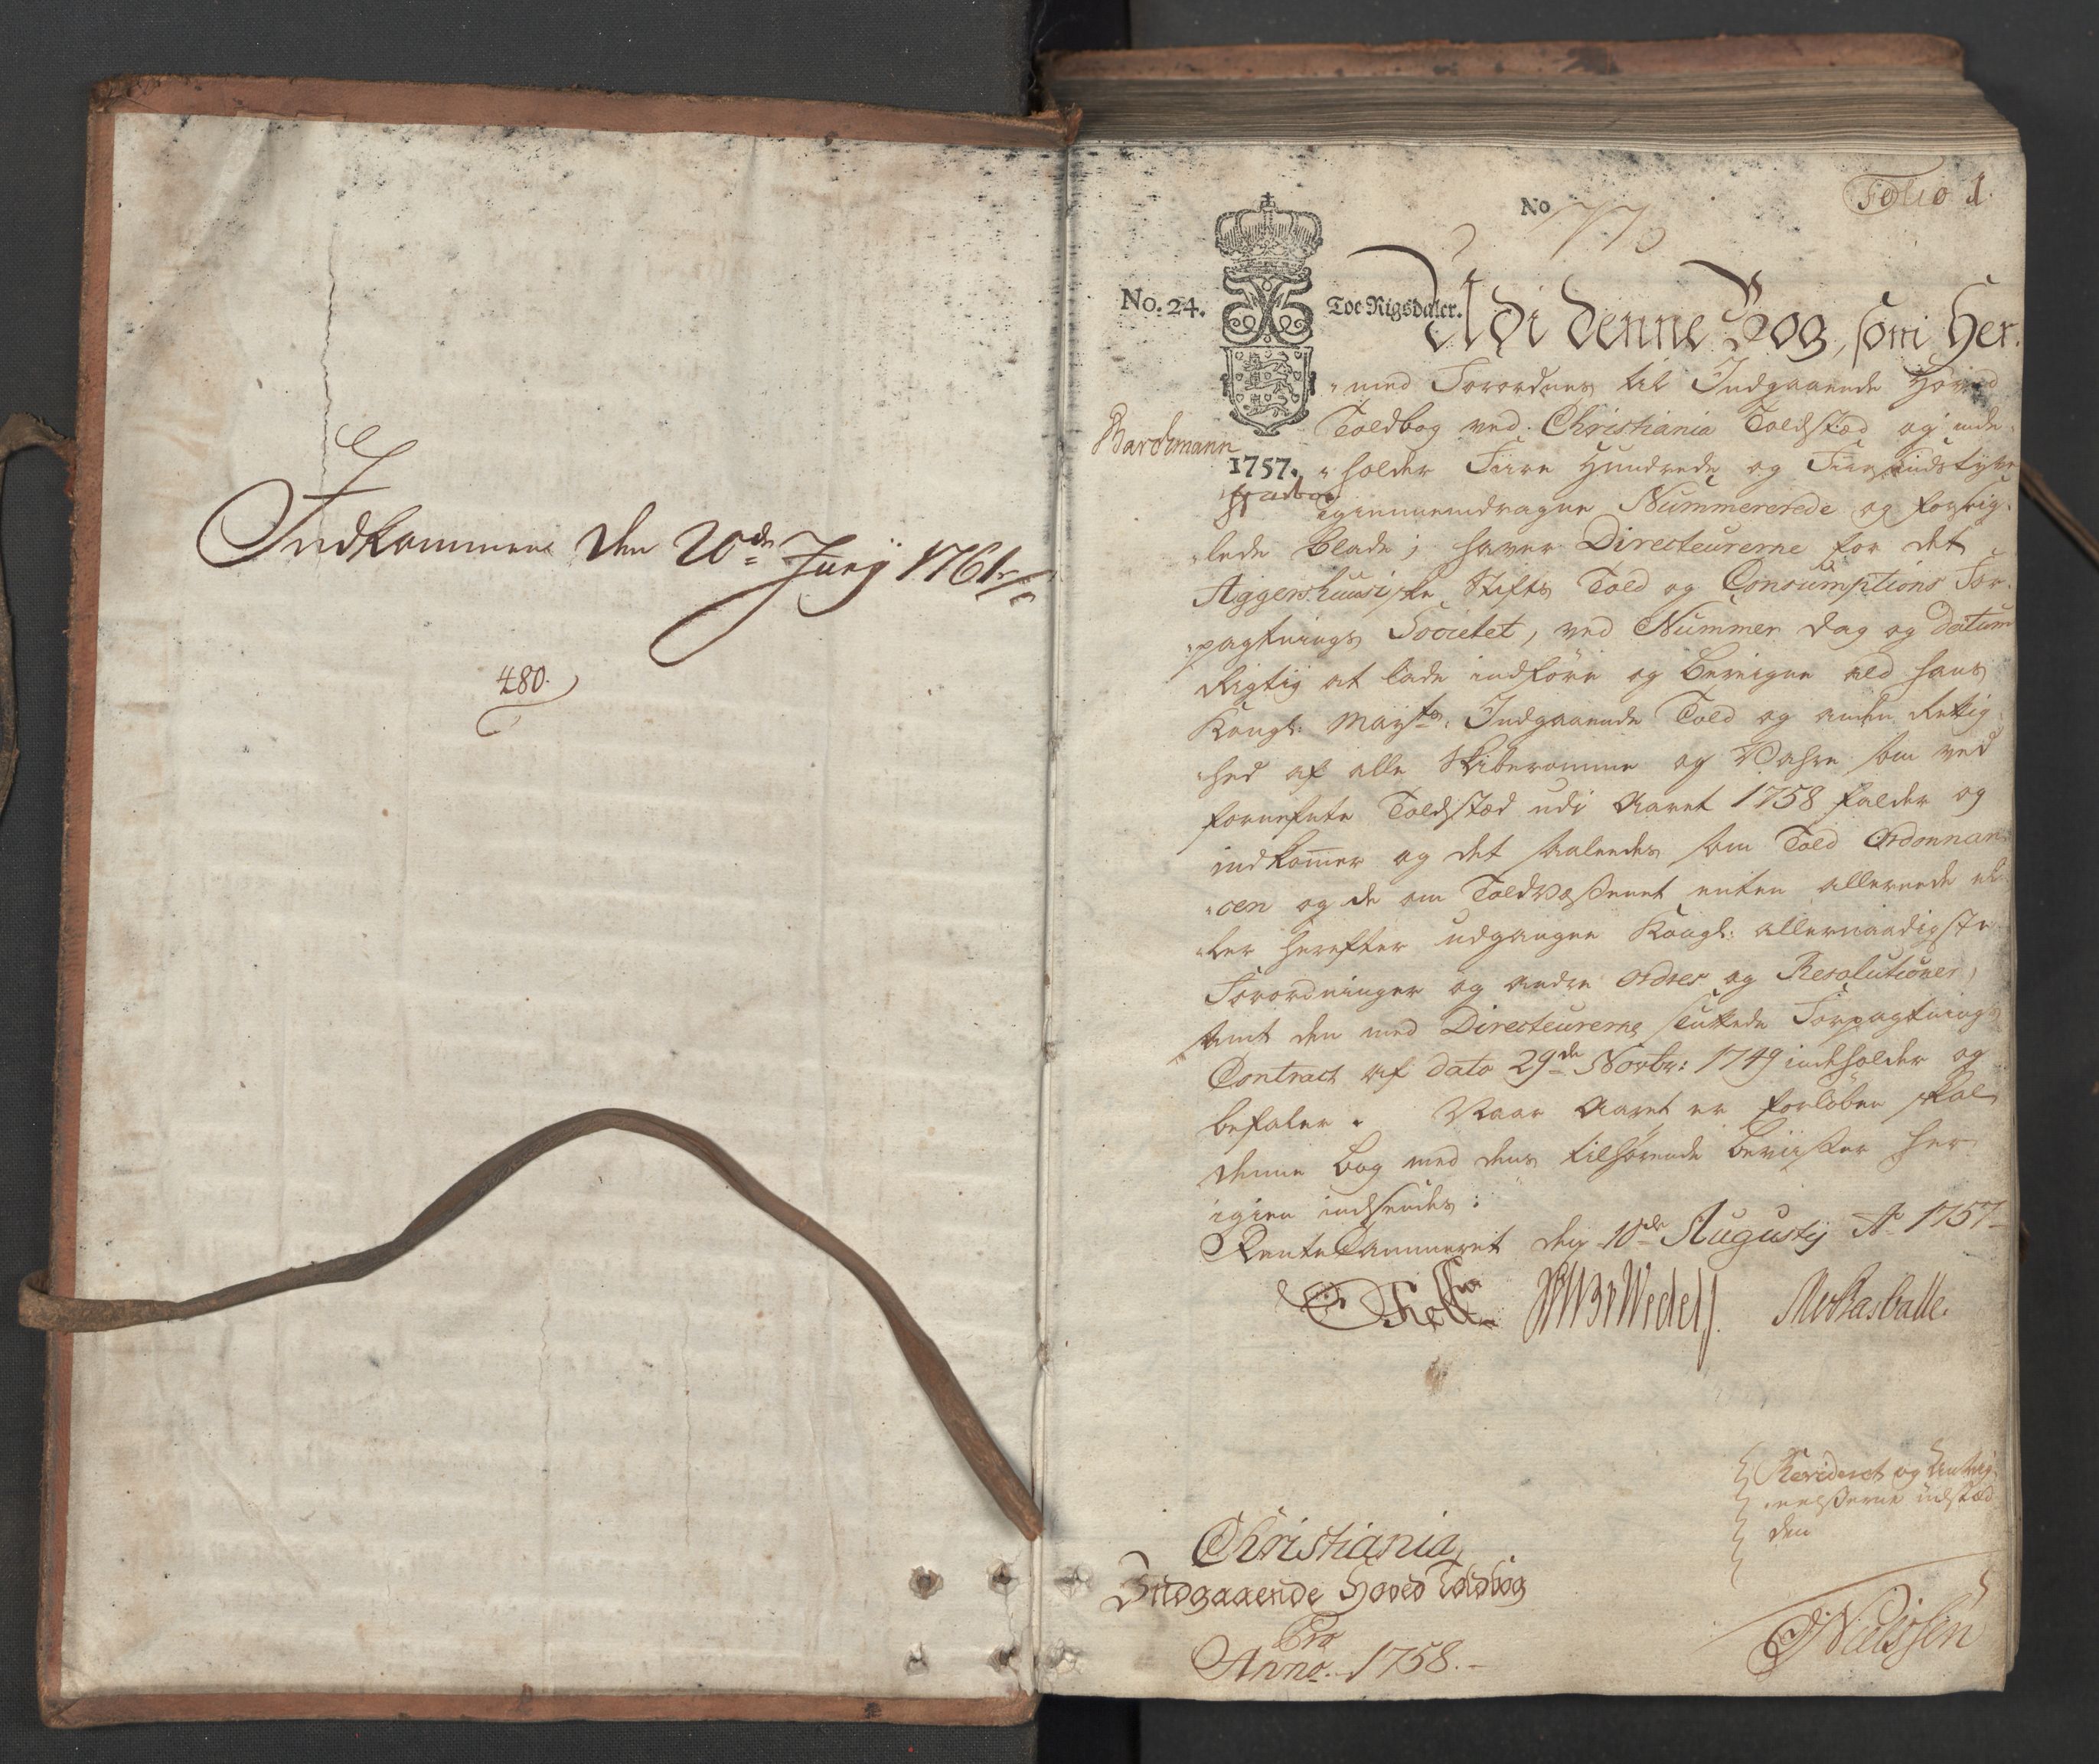 Indkommen den 20de Junij 1761.
480.
Folio 1.
No 77
No. 24.
Toe Rigsdaler.
1757.
Udi denne Bog, som Her-
med Forordnes til Indgaaende Hoved
Toldbog ved Christiania Toldsted og inde-
holder Fiire Hundrede og Fiiresindstyve
igiennemdragne Nummererede og forsig-
lede Blade; haver Directeurerne for det
Aggershuusiske Stifts Told og Consumptions For-
pagtnings Societet, ved Nummer dag og Datum
Rigtig at lade indføre og Beregne ald hans
Kongl: Mayts: Indgaaende Told og anden Rettig-
hed af alle Skiberomme og Vahre som ved
fornefnte Toldsted udi Aaret 1758 falder og
indkommer og det saaledes som Told Ordonnan-
cen og de om Toldvæsenet enten allerede el-
ler herefter udgangne Kongl: allernaadigste
Forordninger og andre Ordres og Resolutioner,
samt den med Directeurerne sluttede Forpagtnings
Contract af dato 29de Novbr: 1749 indeholder og
befaler. Naar Aaret er forløben skal
denne Bog med dens tilhørende Beviiser her
igien indsendes:
RenteCammeret den 10de Augustij Ao 1757
Wedel
Revideret og Anteg-
nelserne udsted
den
Nielssen
Christiania
Indgaaende Hoved Toldbog
Pro
Anno 1758.